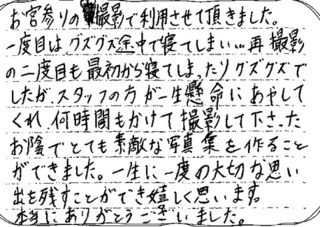 お宮参りの撮影で利用させて頂きました。
一度目は、グズグズ途中で寝てしまい…再撮影
の二度目も最初から寝てしまったりグズグズで
したが、スタッフの方が一生懸命にあやして
くれ、何時間もかけて撮影して下さった
お陰でとても素敵な写真集を作ること
ができました。一生に一度の大切な思い
出を残すことができ嬉しく思います。
本当にありがとうございました。